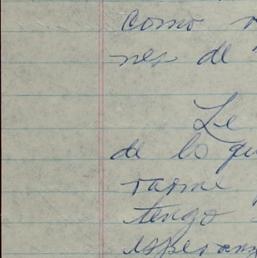 como
nes de
Le
de lo qu
rarme
tengo
esperanz